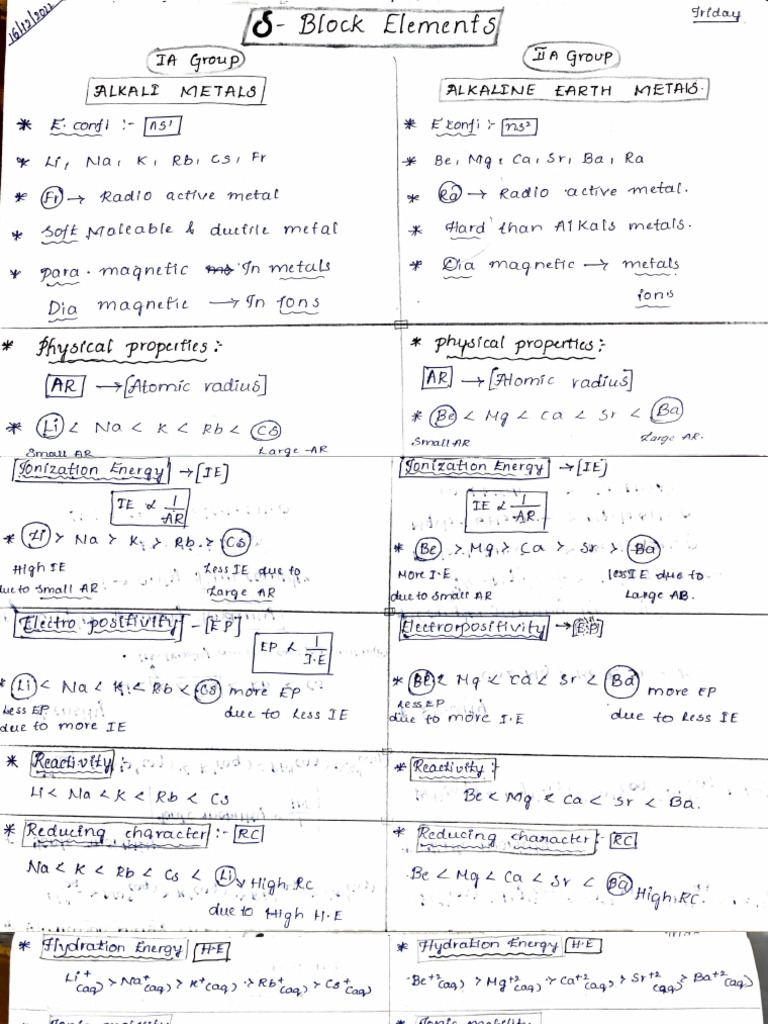 16/12/2022
Friday
S- Block Elements
IA Group
ALKALI METALS
* E. confi :- ns¹
* Li, Na, K, Rb, Cs, Fr
* Fr → Radio active metal
* Soft Maleable & ductile metal
* para. magnetic In metals
Dia magnetic → In Ions
* Physical properties :-
AR → [Atomic radius]
* Li < Na < K < Rb < Cs
Small AR Large AR
Ionization Energy → [IE]
IE ∝ 1/AR
* Li > Na > K > Rb > Cs
High IE Less IE due to
due to small AR Large AR
Electro positivity - [EP]
EP ∝ 1/I.E
* Li < Na < K < Rb < Cs more EP
Less EP due to Less IE
due to more IE
* Reactivity :-
Li < Na < K < Rb < Cs
* Reducing character :- RC
Na < K < Rb < Cs < Li → High RC
due to High H.E
* Hydration Energy H.E
Li⁺(aq) > Na⁺(aq) > K⁺(aq) > Rb⁺(aq) > Cs⁺(aq)
IIA Group
ALKALINE EARTH METALS.
* E confi :- ns²
* Be, Mg, Ca, Sr, Ba, Ra
* Ra → Radio active metal.
* Hard than Alkals metals.
* Dia magnetic → metals
ions
* physical properties :-
AR → [Atomic radius]
* Be < Mg < Ca < Sr < Ba
Small AR Large AR.
Ionization Energy → [IE]
IE ∝ 1/AR
* Be > Mg > Ca > Sr > Ba
More I.E less IE due to
due to small AR Large AB.
Electropositivity → EP
* Be < Mg < Ca < Sr < Ba more EP
Less EP
due to more I.E due to Less IE
* Reactivity :-
Be < Mg < Ca < Sr < Ba.
* Reducing character :- RC
Be < Mg < Ca < Sr < Ba High RC.
* Hydration Energy H.E
Be⁺²(aq) > Mg⁺²(aq) > Ca⁺²(aq) > Sr⁺²(aq) > Ba⁺²(aq)